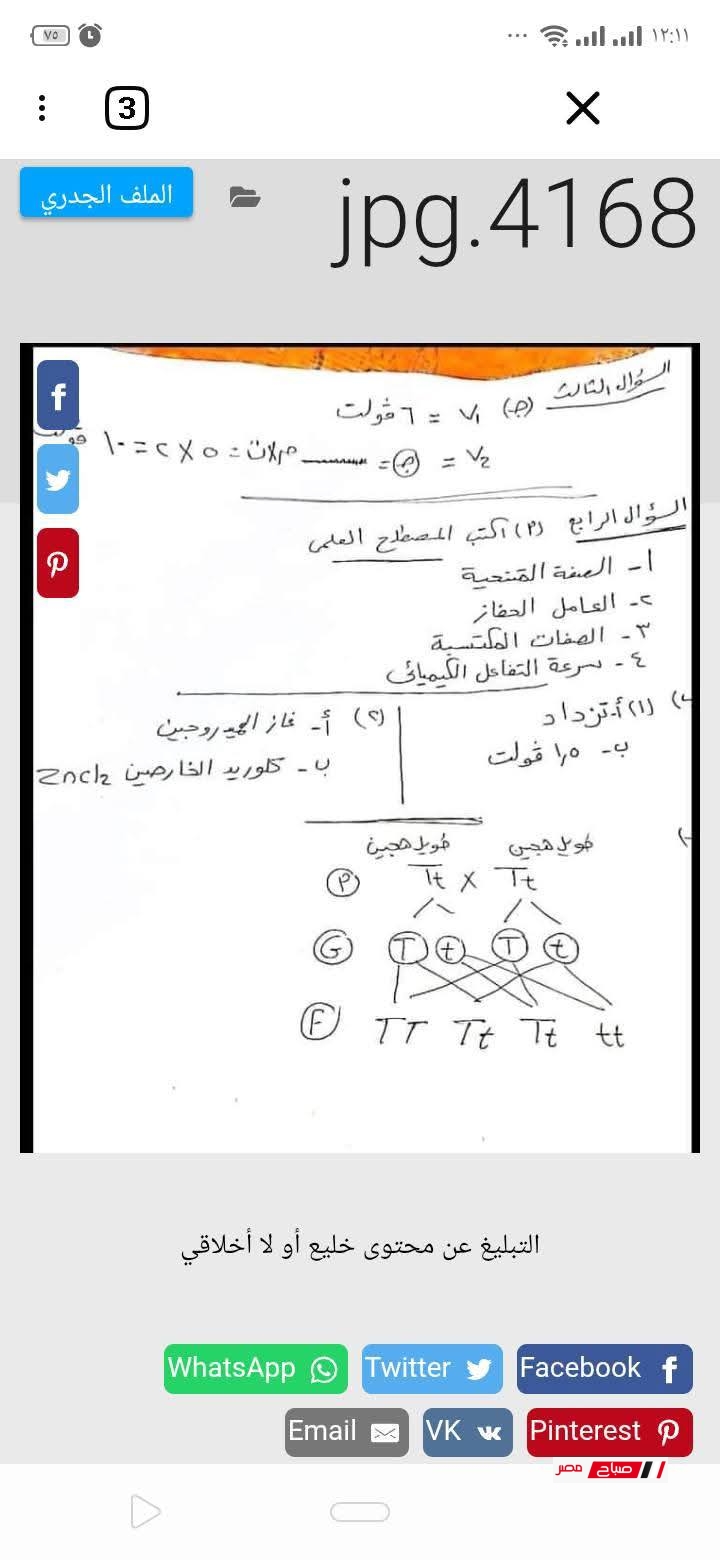 ١٢:١١ ... ٧٥
3
jpg.4168
الملف الجدري
السؤال الثالث (ج) V₁ = ٦ ڤولت
V₂ = = ـــــــ = ٥ × ٢ = ١٠
السؤال الرابع (٢) اكتب المصطلح العلمى
١- الصفة المتنحية
٢- العامل الحفاز
٣- الصفات المكتسبة
٤- سرعة التفاعل الكيميائى
(١) أ- تزداد
ب- ١,٥ ڤولت
(٢) أ- غاز الهيدروجين
ب- كلوريد الخارصين Zncl2
طويل هجين طويل هجين
P Tt X Tt
G T t T t
F TT Tt Tt tt
التبليغ عن محتوى خليع أو لا أخلاقي
Facebook Twitter WhatsApp
Pinterest VK Email
صباح مصر